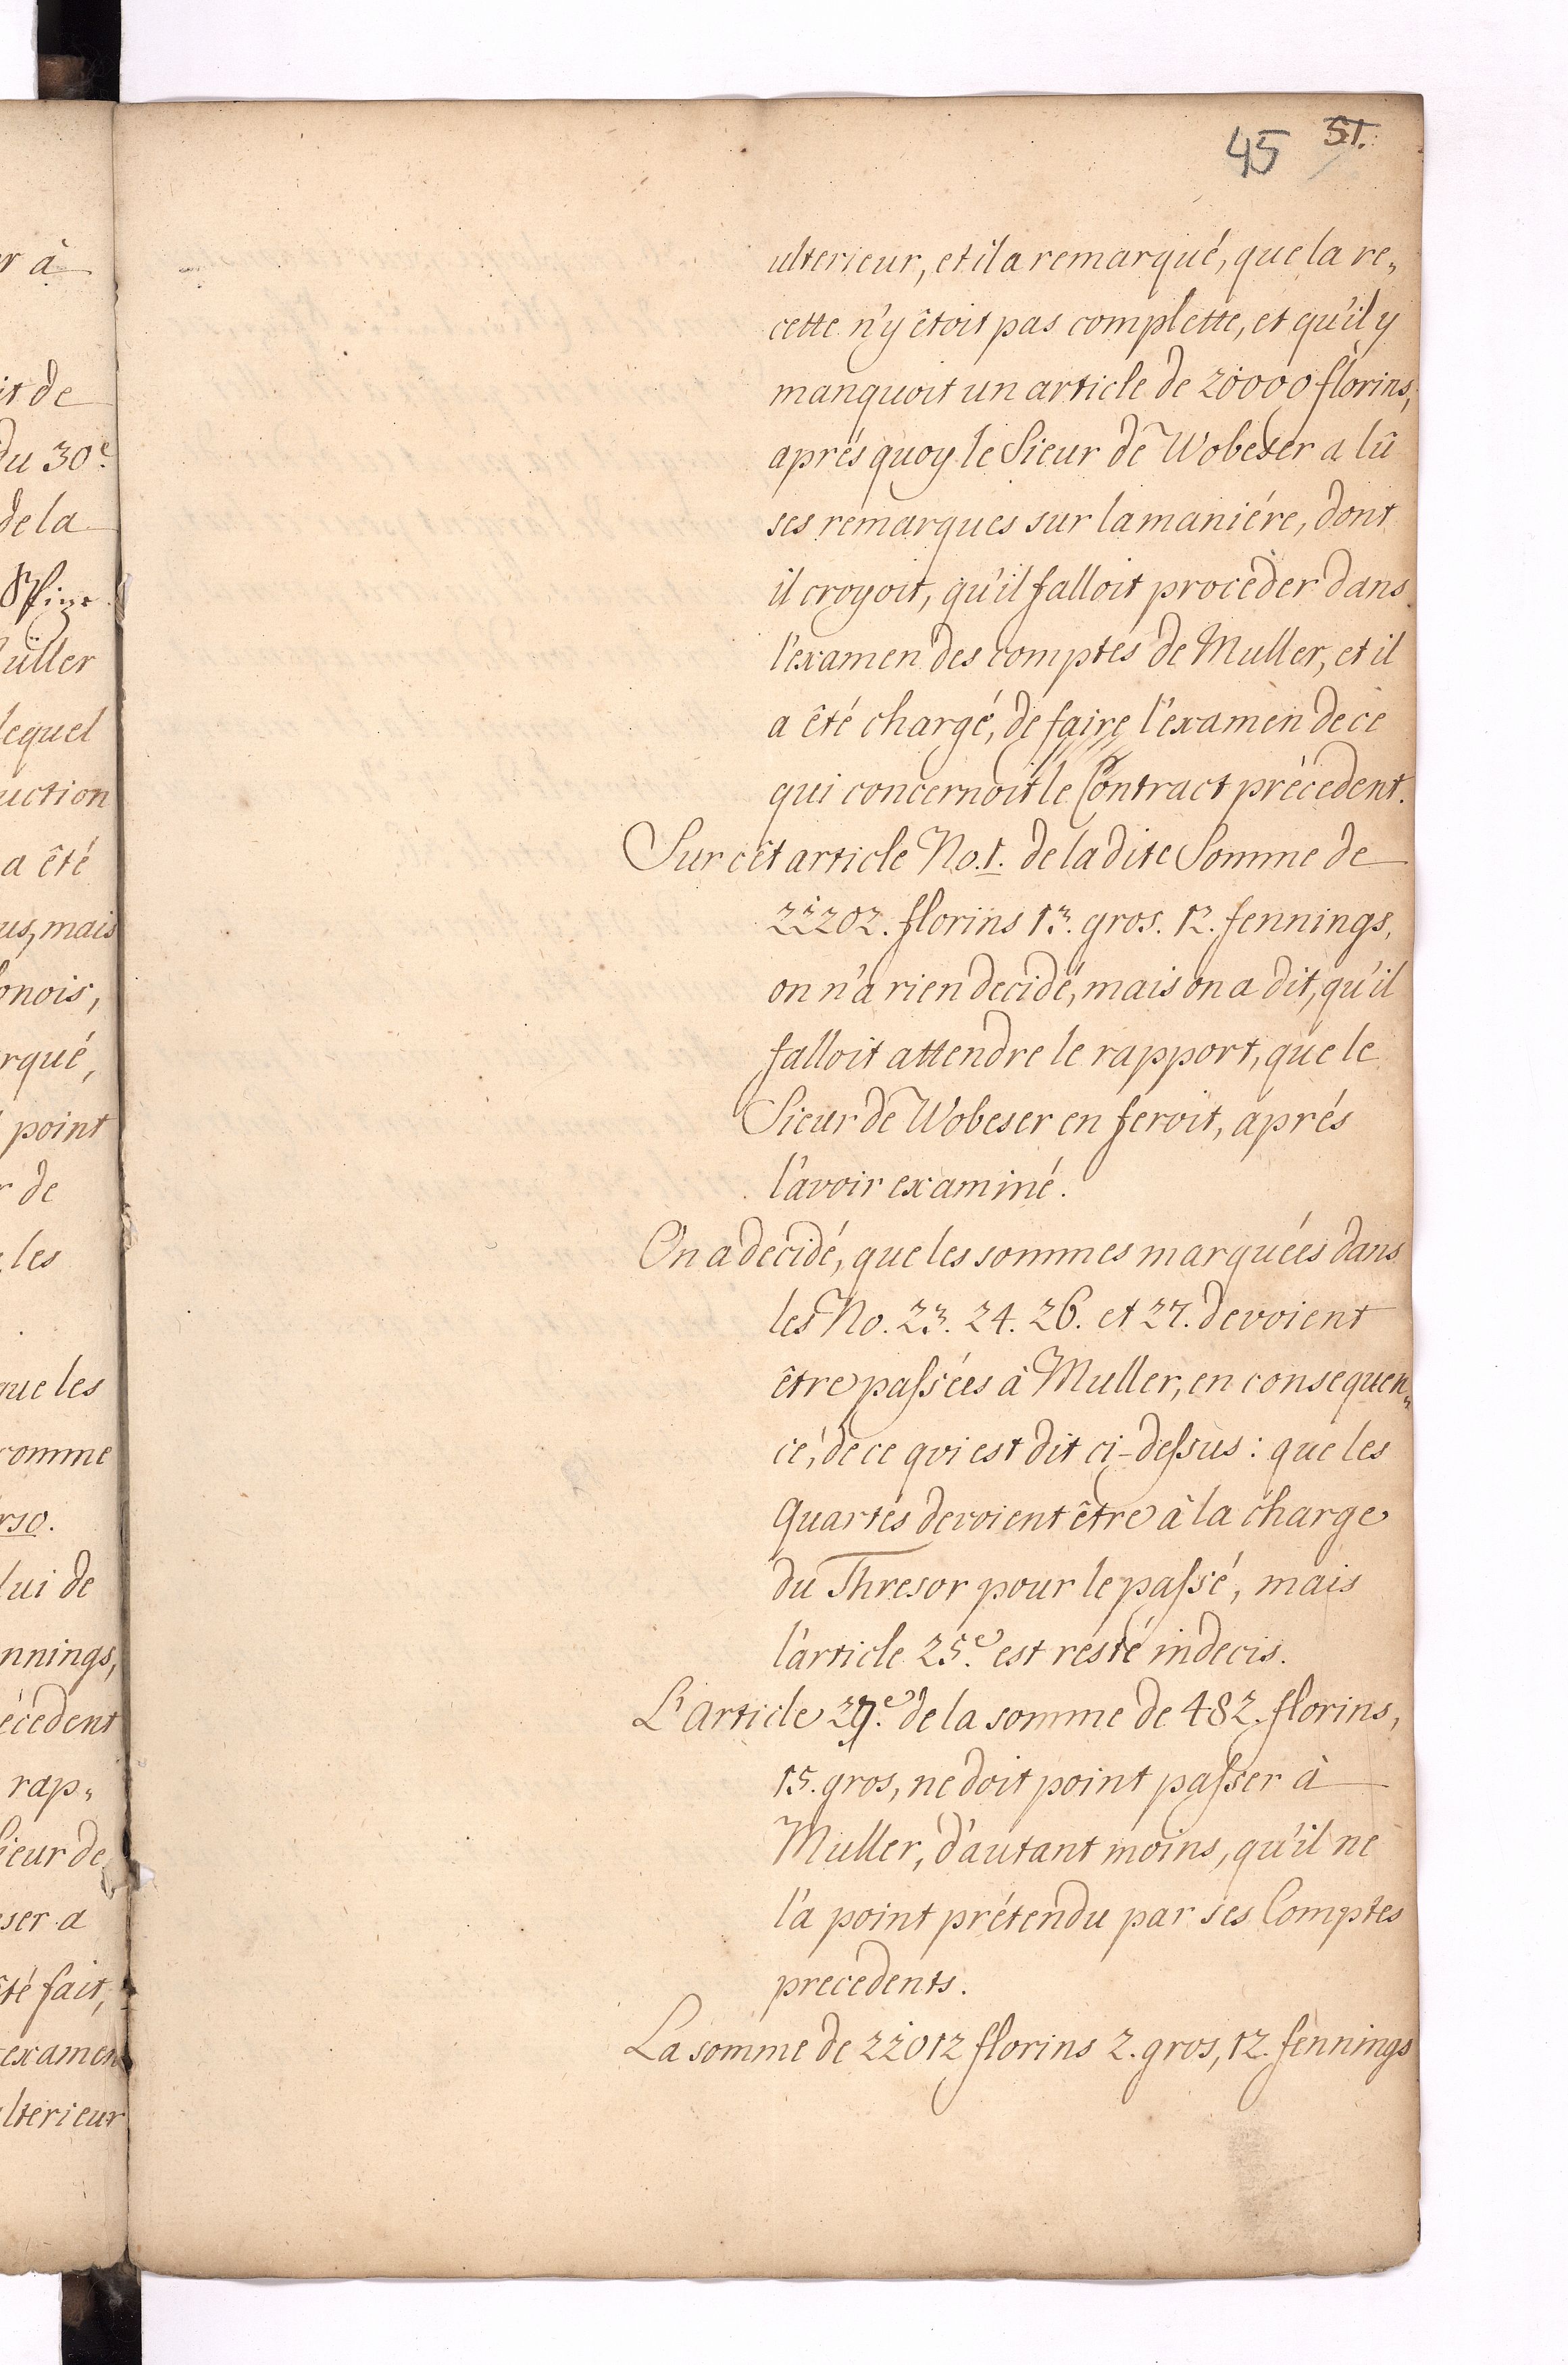 45 51.
ulterieur, et il a remarqué, que la re„
cette n'y êtoit pas complette, et qu'il y
manquoit un article de 20000 florins,
aprés quoy le Sieur de Wobeser a lû
ses remarques sur la maniére, dont
il croyoit, qu'il falloit procéder dans
l'examen des comptes de Muller, et il
a êté chargé, de faire l'examen de ce
qui concernoit le Contract précedent.
Sur cèt article No. 1. de la dite Somme de
22202. florins 13. gros. 12. fennings,
on n'a rien decidé, mais on a dit, qu'il
falloit attendre le rapport, que le
Sieur de Wobeser en feroit, aprés
l'avoir examiné.
On a decidé, que les sommes marquées dans
les No. 23. 24. 26. et 27. devoient
être passées à Muller, en consequen„
ce, de ce qvi est dit ci-dessus: que les
Quartes devoient être à la charge
du Thresor pour le passé, mais
l'article 25.e est resté indecis.
L'Article 29.e de la somme de 482. florins,
15. gros, ne doit point passer à
Muller, d'autant moins, qu'il ne
l'a point prétendu par ses Comptes
precedents.
La somme de 22012 florins 2. gros, 12. fennings
r à
it de
du 30.e
de la
üller
lequel
uction
a êté
us, mais
onois,
rqué,
point
r de
les
que les
comme
rso.
lui de
nnings,
écedent
rap„
Sieur de
eser a
té fait,
examen
lterieur